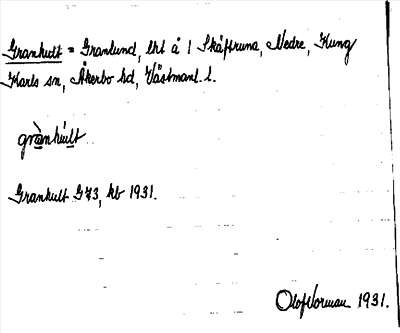 Grankult = Granlund, lht å 1 Skäffruna, Nedre, Kung
Karls sn, Åkerbo hd, Västmanl. l.
grànhúlt
Grankult G73, kb 1931.
Olof Norman 1931.